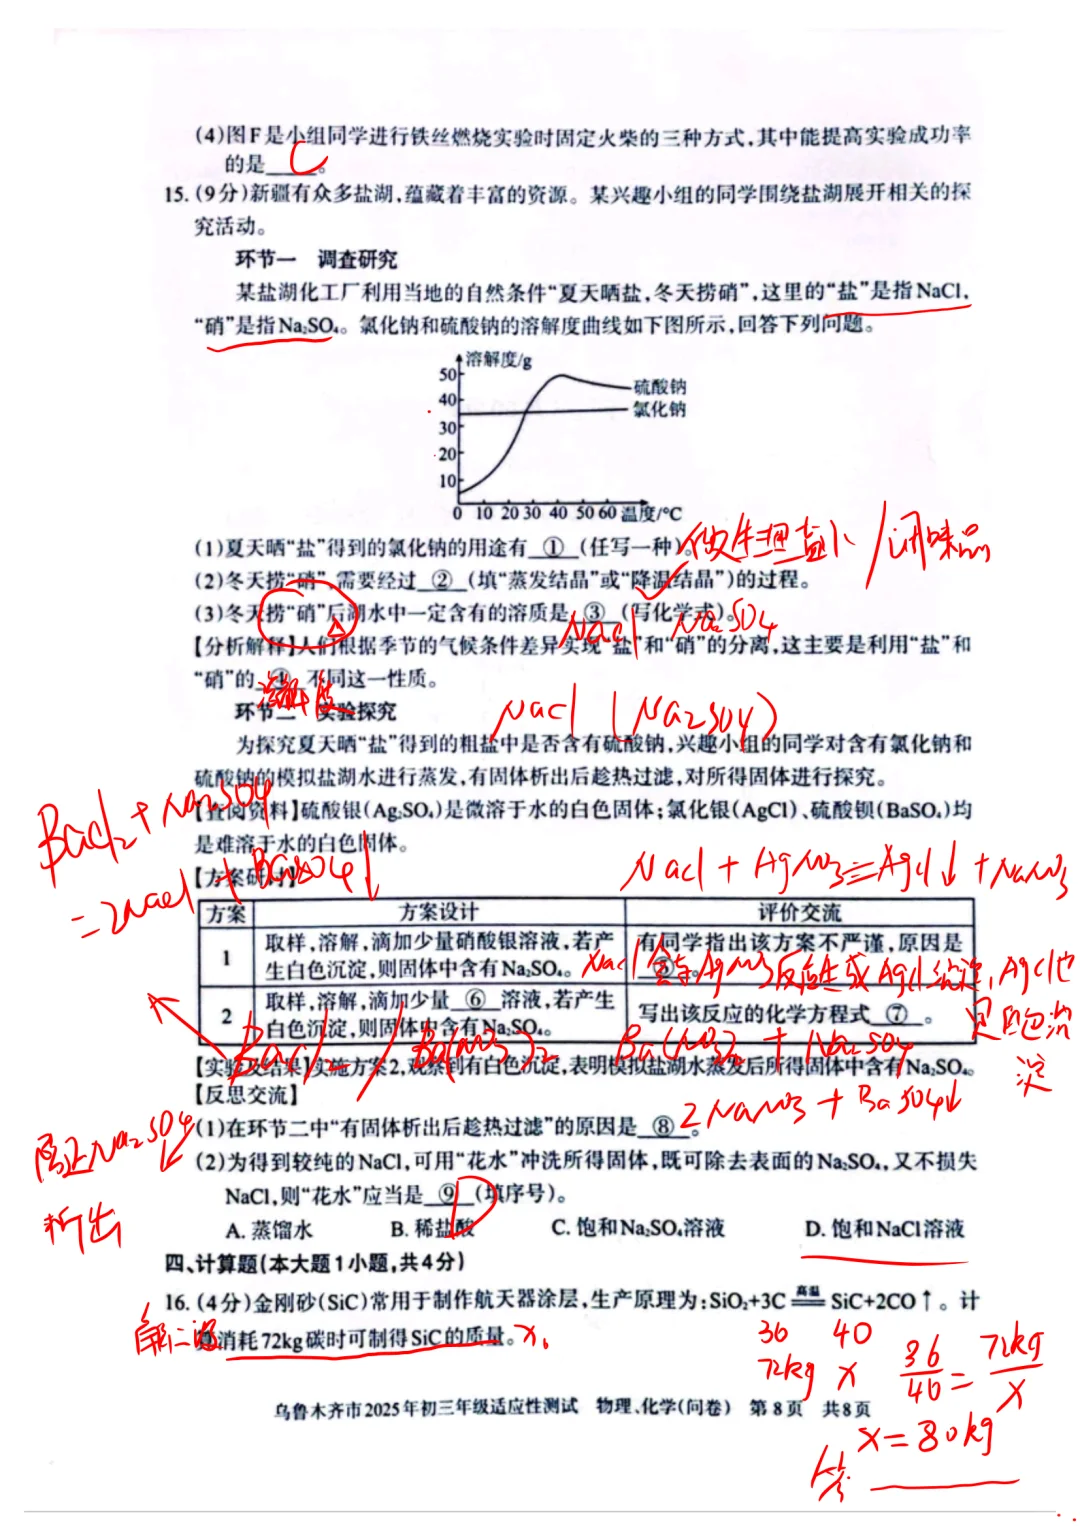 (4)图F是小组同学进行铁丝燃烧实验时固定火柴的三种方式,其中能提高实验成功率
的是____。 C
15.(9分)新疆有众多盐湖,蕴藏着丰富的资源。某兴趣小组的同学围绕盐湖展开相关的探
究活动。
环节一 调查研究
某盐湖化工厂利用当地的自然条件“夏天晒盐,冬天捞硝”,这里的“盐”是指NaCl,
“硝”是指Na₂SO₄。氯化钠和硫酸钠的溶解度曲线如下图所示,回答下列问题。
溶解度/g
50
40
30
20
10
硫酸钠
氯化钠
0 10 20 30 40 50 60 温度/℃
(1)夏天晒“盐”得到的氯化钠的用途有 ① (任写一种)。 做生理盐水/调味品
(2)冬天捞“硝”,需要经过 ② (填“蒸发结晶”或“降温结晶”)的过程。
(3)冬天捞“硝”后湖水中一定含有的溶质是 ③ (写化学式)。 NaCl Na₂SO₄
【分析解释】人们根据季节的气候条件差异实现“盐”和“硝”的分离,这主要是利用“盐”和
“硝”的 ④ 不同这一性质。 溶解度
环节二 实验探究 NaCl (Na₂SO₄)
为探究夏天晒“盐”得到的粗盐中是否含有硫酸钠,兴趣小组的同学对含有氯化钠和
硫酸钠的模拟盐湖水进行蒸发,有固体析出后趁热过滤,对所得固体进行探究。
【查阅资料】硫酸银(Ag₂SO₄)是微溶于水的白色固体;氯化银(AgCl)、硫酸钡(BaSO₄)均
是难溶于水的白色固体。
BaCl₂+Na₂SO₄
=2NaCl+BaSO₄↓
【方案研讨】 NaCl+AgNO₃=AgCl↓+NaNO₃
方案 方案设计 评价交流
1 取样,溶解,滴加少量硝酸银溶液,若产
生白色沉淀,则固体中含有Na₂SO₄。
有同学指出该方案不严谨,原因是
⑤ 。
NaCl会与AgNO₃反应生成AgCl沉淀,AgCl也
是白色沉
淀
2 取样,溶解,滴加少量 ⑥ 溶液,若产生
白色沉淀,则固体中含有Na₂SO₄。
BaCl₂/Ba(NO₃)₂
写出该反应的化学方程式 ⑦ 。
Ba(NO₃)₂+Na₂SO₄
2NaNO₃+BaSO₄↓
【实验及结果】实施方案2,观察到有白色沉淀,表明模拟盐湖水蒸发后所得固体中含有Na₂SO₄。
【反思交流】
(1)在环节二中“有固体析出后趁热过滤”的原因是 ⑧ 。
防止Na₂SO₄
析出
(2)为得到较纯的NaCl,可用“花水”冲洗所得固体,既可除去表面的Na₂SO₄,又不损失
NaCl,则“花水”应当是 ⑨ (填序号)。 D
A. 蒸馏水 B. 稀盐酸 C. 饱和Na₂SO₄溶液 D. 饱和NaCl溶液
四、计算题(本大题1小题,共4分)
16.(4分)金刚砂(SiC)常用于制作航天器涂层,生产原理为:SiO₂+3C 高温 SiC+2CO↑。计
算消耗72kg碳时可制得SiC的质量。 x。
36 40
72kg x
36/40=72kg/x
x=80kg
答
乌鲁木齐市2025年初三年级适应性测试 物理、化学(问卷) 第8页 共8页